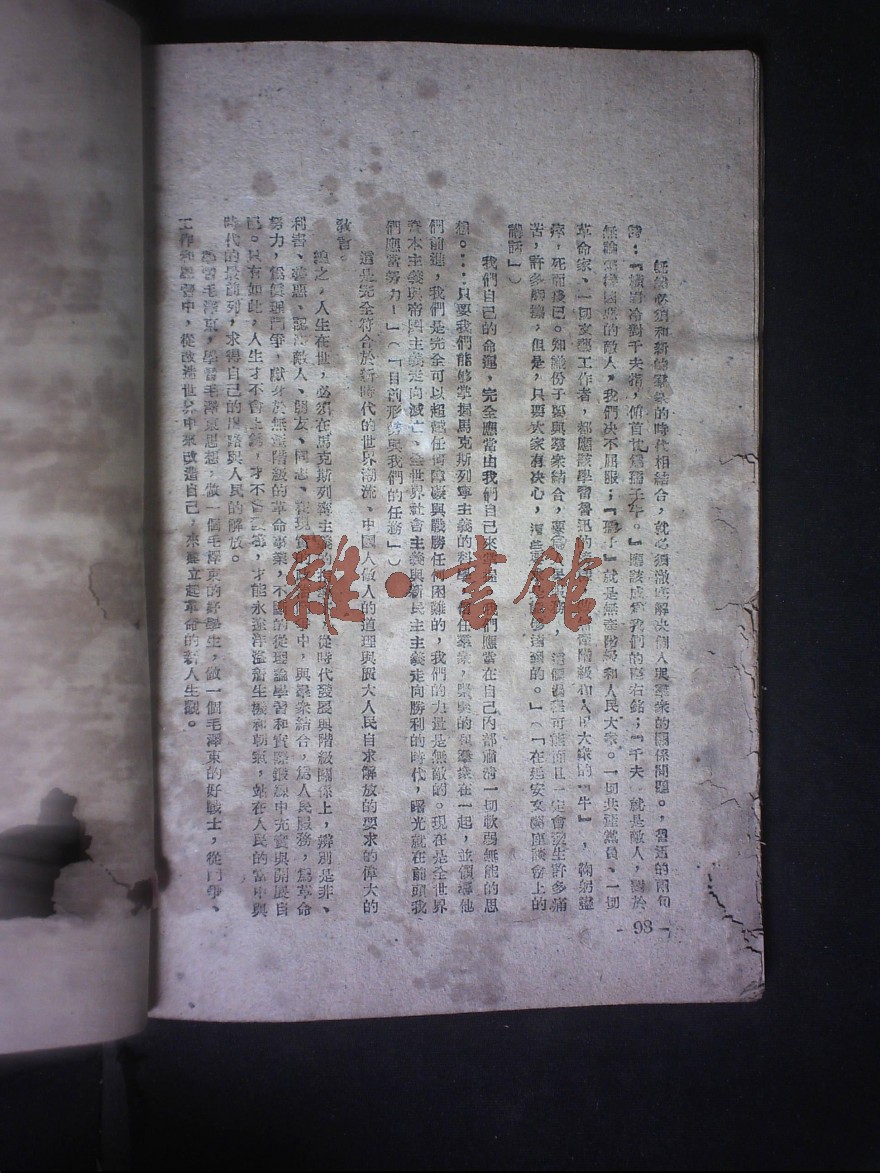 既然必須和新的羣衆的時代相結合，就必須澈底解決個人與羣衆的關係問題。魯迅的兩句
詩：『橫眉冷對千夫指，俯首甘爲孺子牛。』應該成爲我們的座右銘；『千夫』就是敵人，對於
無論怎樣困惡的敵人，我們決不屈服；『孺子』就是無產階級和人民大衆。一切共產黨員、一切
革命家、一切文藝工作者，都應該學習魯迅的 無產階級和人民大衆的『牛』，鞠躬盡
瘁，死而後已。知識份子要與羣衆結合，要爲 ，這個過程可能而且一定會發生許多痛
苦，許多磨擦，但是，只要大家有决心，這些要 達到的。」（「在延安文藝座談會上的
講話」）
我們自己的命運，完全應當由我們自己來 我們應當在自己內部肅清一切軟弱無能的思
想。…只要我們能够掌握馬克斯列寧主義的科學， 信任羣衆，緊緊的和羣衆在一起，並領導他
們前進，我們是完全可以超越任何障礙與戰勝任何困難的，我們的力量是無敵的。現在是全世界
資本主義與帝國主義走向滅亡、全世界社會主義與新民主主義走向勝利的時代，曙光就在前頭我
們應當努力！」（「目前形勢與我們的任務」）
這是完全符合於新時代的世界潮流、中國人做人的道理與廣大人民自求解放的要求的偉大的
敎言。
總之，人生在世，必須在馬克斯列寧主義的 從時代發展與階級關係上，辨別是非、
利害、善惡、認清敵人、朋友、同志、在現實的 中，與羣衆結合，爲人民服務，爲革命
努力，爲眞理鬥爭，獻身於無產階級的革命事業，不斷的從理論學習和實際鍛鍊中充實與開展自
己。只有如此，人生才不會 ，才不會 ，才能永遠洋溢着生機和朝氣，站在人民的當中與
時代的最前列，求得自己的出路與人民的解放。
學習毛澤東，學習毛澤東思想，做一個毛澤東的好學生，做一個毛澤東的好戰士，從鬥爭、
工作和學習中，從改造世界中來改造自己，來建立起革命的新人生觀。
- 98 -
雜·書館